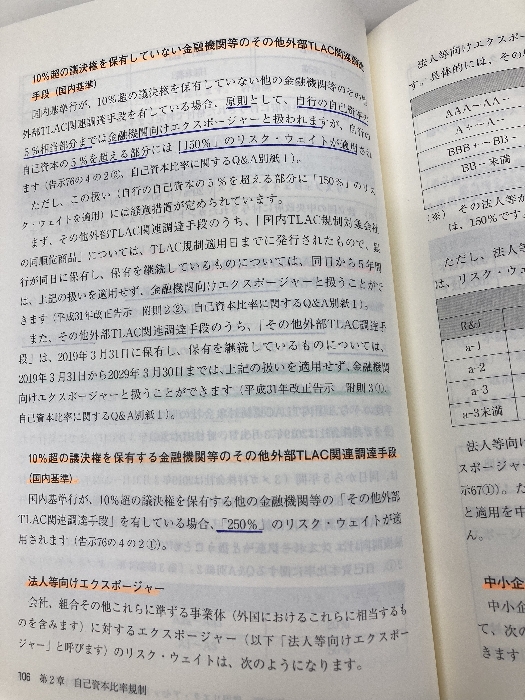 10%超の議決権を保有していない金融機関等のその他外部TLAC関連調達
手段（国内基準）
国内基準行が、10%超の議決権を保有していない他の金融機関等のその他
外部TLAC関連調達手段を有している場合、原則として、自行の自己資本の
5%相当部分までは金融機関向けエクスポージャーと扱われますが、自行の
自己資本の5%を超える部分には「150%」のリスク・ウェイトが適用され
ます（告示76の4の2②、自己資本比率に関するQ&A別紙1）。
ただし、この扱い（自行の自己資本の5%を超える部分に「150%」のリス
ク・ウェイトを適用）には経過措置が定められています。
まず、その他外部TLAC関連調達手段のうち、「国内TLAC規制対象会社
の同順位商品」については、TLAC規制適用日までに発行されたもので、銀
行が同日に保有し、保有を継続しているものについては、同日から5年間
に、上記の扱いを適用せず、金融機関向けエクスポージャーと扱うことがで
きます（平成31年改正告示　附則2②、自己資本比率に関するQ&A別紙1）。
また、その他外部TLAC関連調達手段のうち、「その他外部TLAC調達手
段」は、2019年3月31日に保有し、保有を継続しているものについては、
2019年3月31日から2029年3月30日までは、上記の扱いを適用せず、金融機関
向けエクスポージャーと扱うことができます（平成31年改正告示　附則3①、
自己資本比率に関するQ&A別紙1）。
10%超の議決権を保有する金融機関等のその他外部TLAC関連調達手段
（国内基準）
国内基準行が、10%超の議決権を保有する他の金融機関等の「その他外部
TLAC関連調達手段」を有している場合、「250%」のリスク・ウェイトが適
用されます（告示76の4の2①）。
法人等向けエクスポージャー
会社、組合その他これらに準ずる事業体（外国におけるこれらに相当するも
のを含みます）に対するエクスポージャー（以下「法人等向けエクスポー
ジャー」と呼びます）のリスク・ウェイトは、次のようになります。
106　第2章　自己資本比率規制
法人等向けエクスポー
す。具体的には、その
AAA～AA-
A+～A-
BBB+～BB-
BB-未満
（※）　その法人等が
は、150%です
ただし、法人等
は、リスク・ウェ
R&I
a-1
a-2
a-3
a-3未満
法人等向け
スポージャ
示67①）。た
と適用を中
ん。
中小企
中小企
て、次の
きます